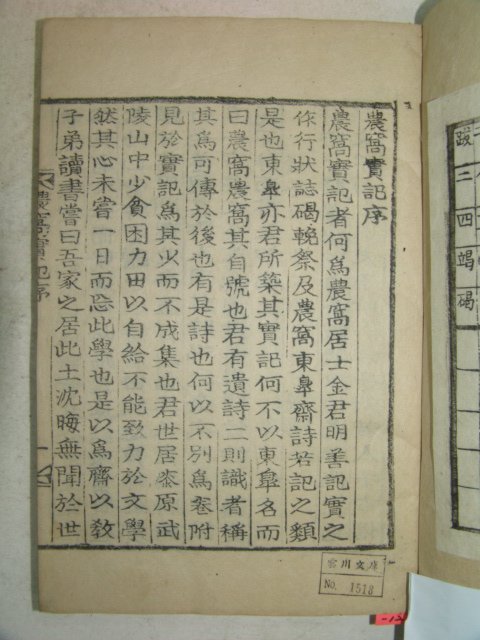 農窩實記序
農窩實記者何爲農窩居士金君明善記實之
作行狀誌碣輓祭及農窩東皐齋詩若記之類
是也東皐亦君所築其實記何不以東皐名而
曰農窩農窩其自號也君有遺詩二則識者稱
其爲可傳於後也有是詩也何以不別爲卷附
見於實記爲其少而不成集也君世居泰原武
陵山中少貧困力田以自給不能致力於文學
然其心未嘗一日而忘此學也是以爲齋以敎
子弟讀書嘗曰吾家之居此土沈晦無聞於世
農窩實記序
一
跋
二
四
碣
碣
雲川文庫
No. 1518